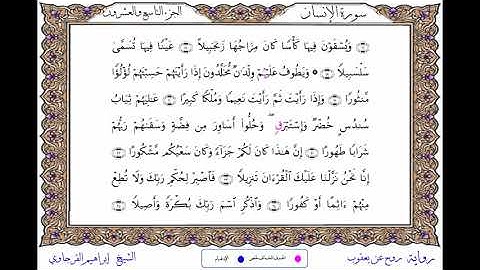 سورة الإنسان
الجزء التاسع والعشرون
وَيُسْقَوْنَ فِيهَا كَأْسًا كَانَ مِزَاجُهَا زَنجَبِيلًا عَيْنًا فِيهَا تُسَمَّىٰ
سَلْسَبِيلًا ۞ وَيَطُوفُ عَلَيْهُمْ وِلْدَٰنٌ مُّخَلَّدُونَ إِذَا رَأَيْتَهُمْ حَسِبْتَهُمْ لُؤْلُؤًا
مَّنثُورًا وَإِذَا رَأَيْتَ ثَمَّ رَأَيْتَ نَعِيمًا وَمُلْكًا كَبِيرًا عَٰلِيَهُمْ ثِيَابُ
سُندُسٍ خُضْرٌ وَإِسْتَبْرَقٍ وَحُلُّوا أَسَاوِرَ مِن فِضَّةٍ وَسَقَىٰهُمْ رَبُّهُمْ
شَرَابًا طَهُورًا إِنَّ هَٰذَا كَانَ لَكُمْ جَزَآءً وَكَانَ سَعْيُكُم مَّشْكُورًا
إِنَّا نَحْنُ نَزَّلْنَا عَلَيْكَ الْقُرْءَانَ تَنزِيلًا فَاصْبِرْ لِحُكْمِ رَبِّكَ وَلَا تُطِعْ
مِنْهُمْ ءَاثِمًا أَوْ كَفُورًا وَاذْكُرِ اسْمَ رَبِّكَ بُكْرَةً وَأَصِيلًا
رواية: روح عن يعقوب
الإدغام
الشيخ إبراهيم الفرجاوي